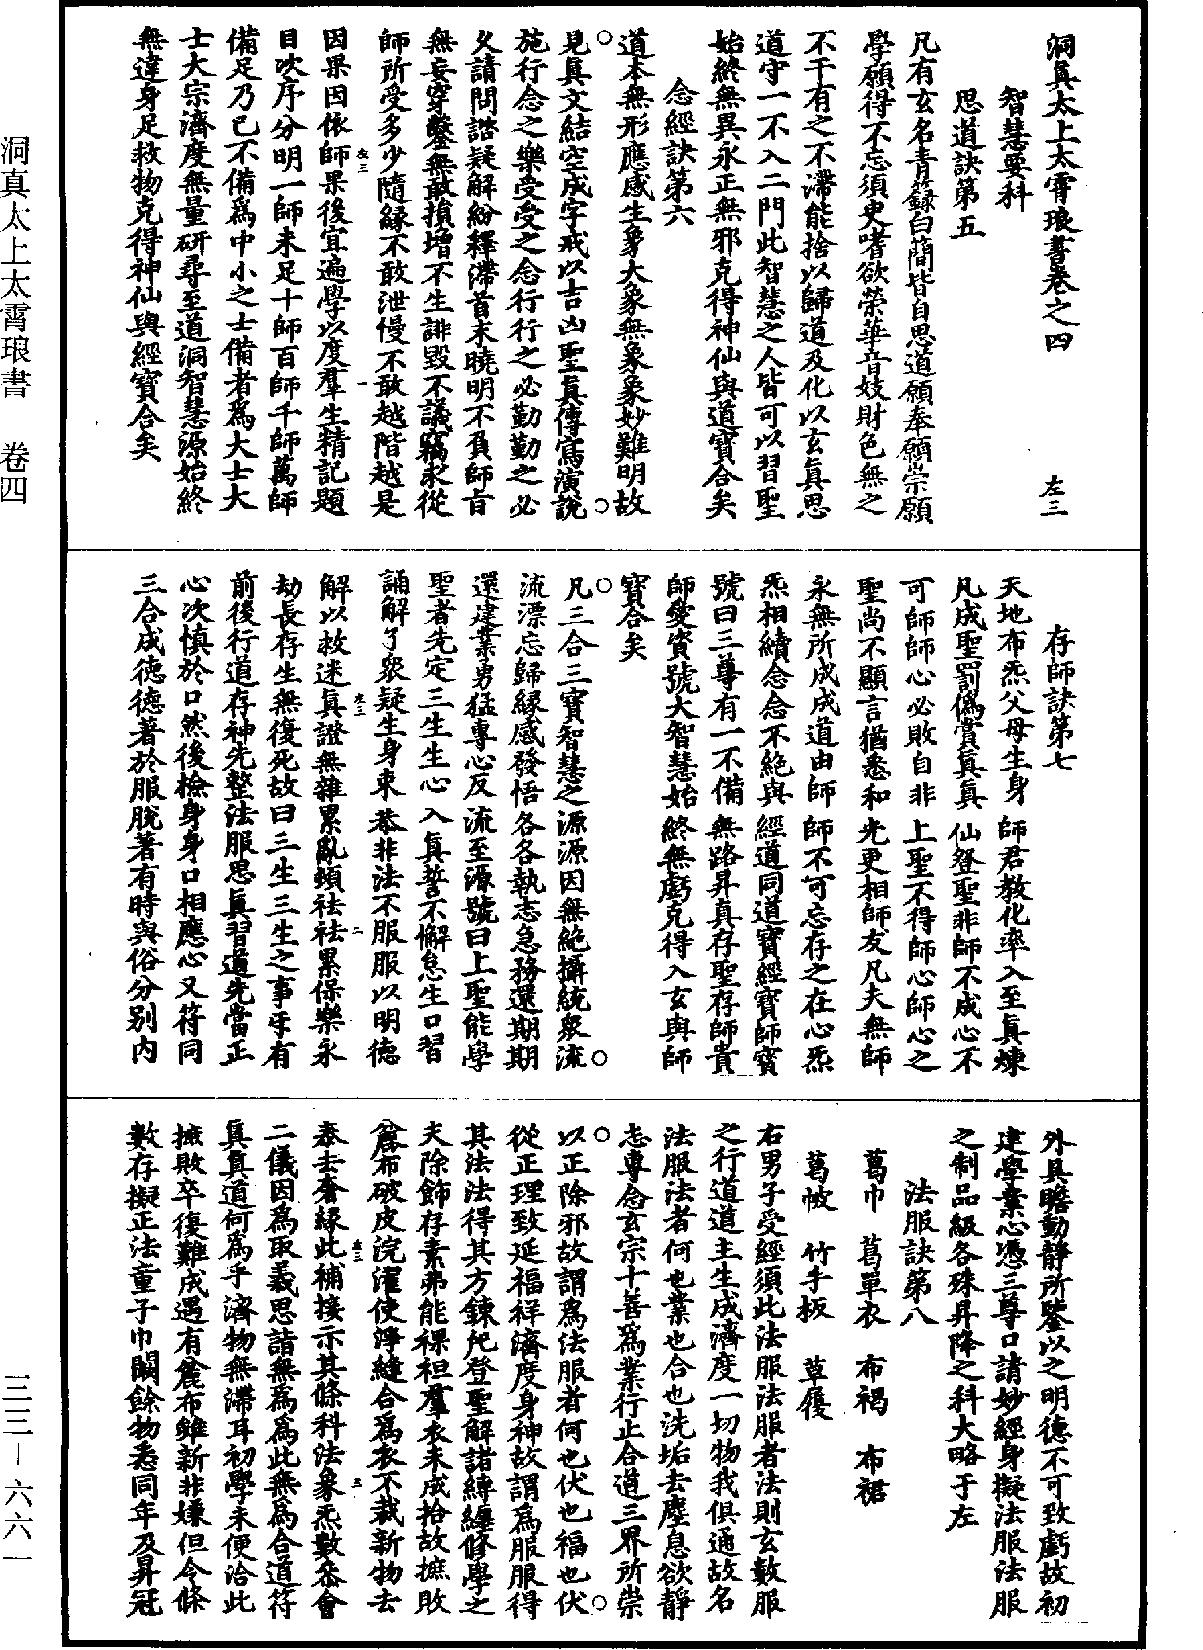 洞真太上太霄琅書卷之四 左三
智慧要科
思道訣第五
凡有玄名青籙白簡皆自思道願奉願崇願
學願得不忘須臾嗜欲榮華音妓財色無之
不干有之不滯能捨以歸道及化以玄真思
道守一不入二門此智慧之人皆可以習聖
始終無異永正無邪克得神仙與道寶合矣
念經訣第六
道本無形應感生象大象無象象妙難明故
見真文結空成字戒以吉凶聖真傳寫演說
施行念之樂受受之念行行之必勤勤之必
久請問諮疑解紛釋滯首末曉明不負師旨
無妄穿鑿無敢損增不生誹毀不議竊永從
師所受多少隨緣不敢泄慢不敢越階越是
因果因依師果後宜遍學以度羣生精記題
目次序分明一師未足十師百師千師萬師
備足乃已不備為中小之士備者為大士大
士大宗濟度無量研尋至道洞智慧源始終
無違身足救物克得神仙與經寶合矣
存師訣第七
天地布炁父母生身師君教化率入至真煉
凡成聖罰偽賞真真仙登聖非師不成心不
可師師心必敗自非上聖不得師心師心之
聖尚不顯言猶悉和光更相師友凡夫無師
永無所成成道由師師不可忘存之在心炁
炁相續念念不絕與經道同道寶經寶師寶
號曰三尊有一不備無路昇真存聖存師貴
師愛資號大智慧始終無虧克得入玄與師
寶合矣
凡三合三寶智慧之源源因無絕攝統衆流
流漂忘歸緣感發悟各各執志急務還期期
還建業勇猛專心反流至源號曰上聖能學
聖者先定三生生心入真誓不懈怠生口習
誦解了衆疑生身束恭非法不服服以明德
解以救迷真證無雜累亂煩祛祛累保樂永
劫長存生無復死故曰三生三生之事乎有
前後行道存神先整法服思真習道先當正
心次慎於口然後檢身身口相應心又符同
三合成德德著於服脫著有時與俗分別內
外具瞻動靜所鑒以之明德不可致虧故初
建學業心憑三尊口請妙經身擬法服法服
之制品級各殊昇降之科大略于左
法服訣第八
葛巾 葛單衣 布褐 布裙
葛帔 竹手板 草履
右男子受經須此法服法服者法則玄數服
之行道道主生成濟度一切物我俱通故名
法服法者何也業也合也洗垢去塵息欲靜
志專念玄宗十善為業行止合道三界所崇
以正除邪故謂為法服者何也伏也福也伏
從正理致延福祥濟度身神故謂為服服得
其法法得其方鍊凡登聖解諸縛纏修學之
夫除飾存素弗能裸袒羣衣未成拾故摭敗
麤布破皮浣濯使淨縫合為衣不裁新物去
泰去奢緣此補接示其條科法象炁數叅會
二儀因為取義思詣無為為此無為合道符
真真道何為乎濟物無滯耳初學未便洽此
摭敗卒復難成遇有麤布雖新非嫌但令條
數存擬正法童子巾闕餘物悉同年及昇冠
洞真太上太霄琅書 卷四
三三—六六一